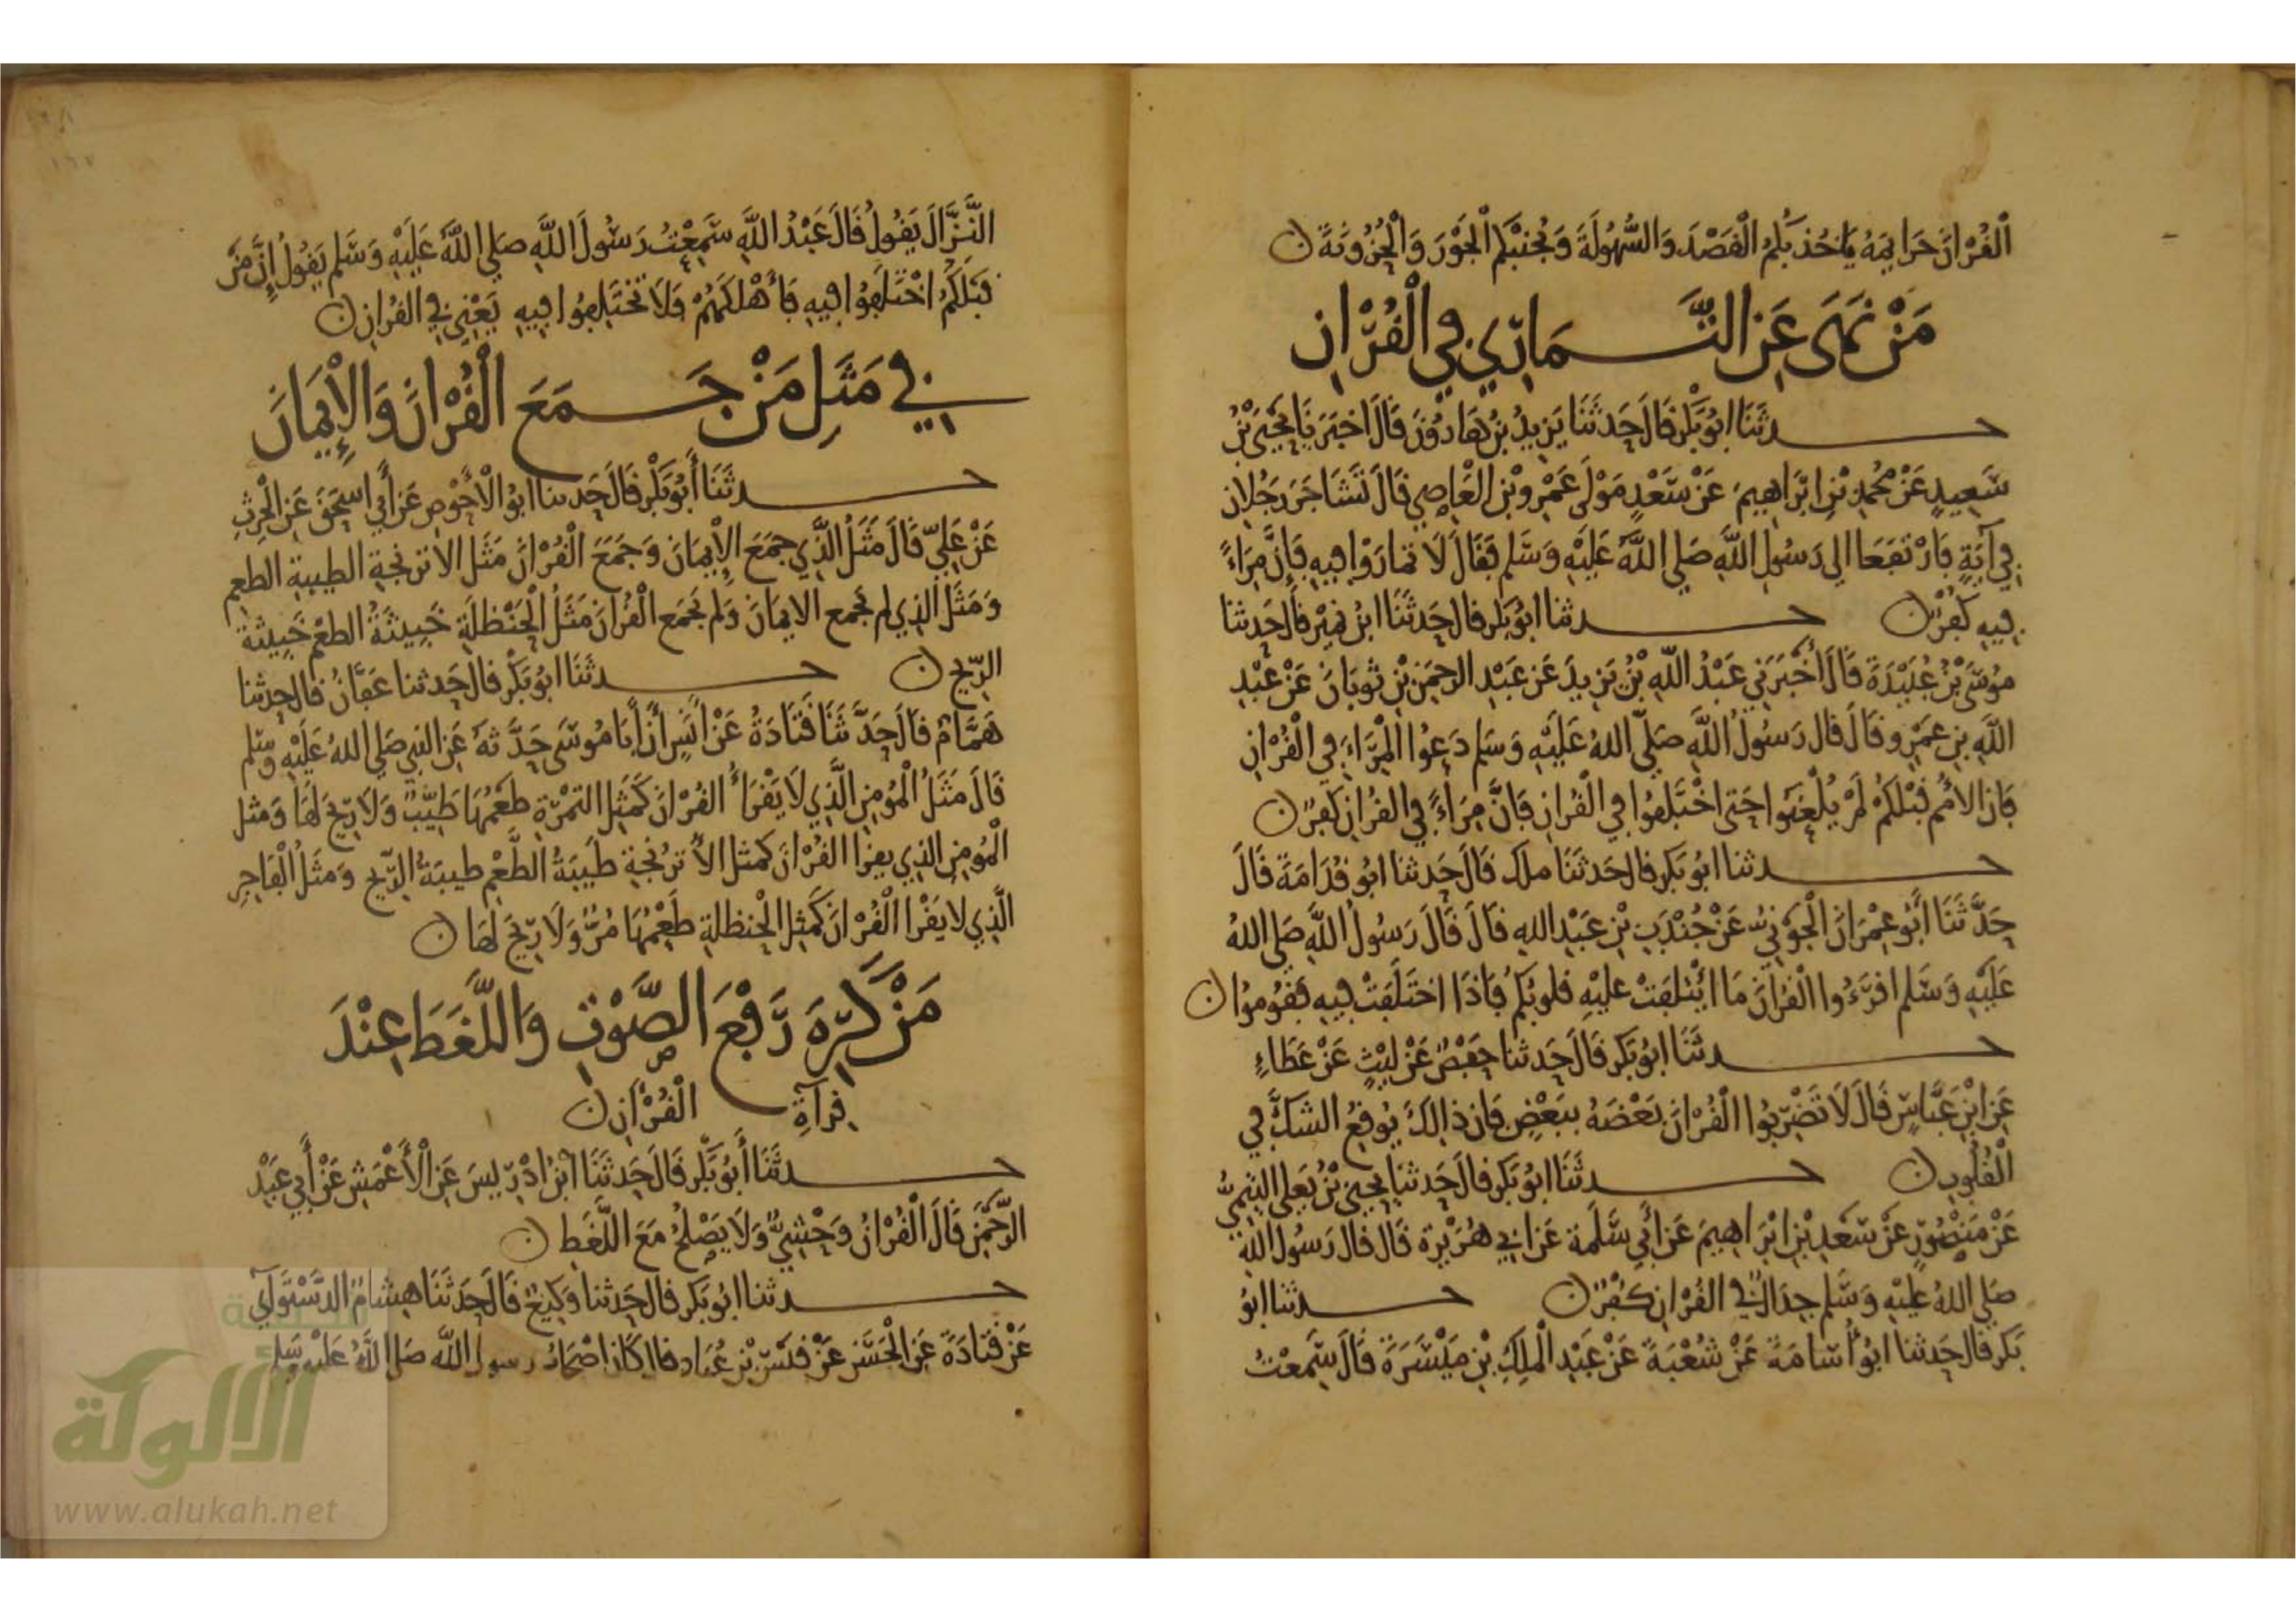 الْقُرْآنَ خَزَايِمَهُ يَاخُذ بِكُمُ الْقَصْدَ وَالسُّهُولَةَ وَيُجَنِّبْكُم الْجَوْرَ وَالْحُزُونَةَ ن
مَنْ نَهَى عَنِ التَّمَارِي فِي الْقُرْآنِ
حدثَنَا ابُو بَكْر قَالَ حَدثَنَا يَزِيدُ بْنُ هَارُونَ قَالَ اخبَرَنَا يَحْيَى بْنُ
سَعِيدٍ عَنْ مُحَمدِ بْنِ ابْرَاهِيمَ عَنْ سَعْدٍ مَوْلَى عَمْرِو بْنِ الْعَاصِي قَالَ تَشَاجَرَ رَجُلانِ
فِي آيَةٍ فَارْتَفَعَا الى رَسُولِ اللَّهِ صَلى اللَّهُ عَلَيْهِ وَسَلم فَقَالَ لَا تمارَوْا فِيهِ فَإِنَّ مِرَاءً
فِيهِ كُفْرٌ ن حدثنا ابُو بَكر قال حَدثَنَا ابنُ نُمَيْر قَالَ حَدثنا
مُوسَى بْنُ عُبَيْدَةَ قَالَ أَخْبَرَنِي عَبْدُ اللَّهِ بْنُ يَزِيدَ عَنْ عَبْدِ الرحمَنِ بْنِ ثَوْبَانَ عَنْ عَبْدِ
اللَّهِ بنِ عَمْرٍو قَالَ قال رَسُولُ اللَّهِ صَلَّى اللهُ عَلَيْهِ وَسَلم دَعُوا الْمِرَاءَ فِي الْقُرْآنِ
فَإن الأُمَم قَبْلَكُمْ لَمْ يُلْعَنُوا حَتى اخْتَلَفُوا فِي الْقُرآنِ فَانَّ مِرَاءً فِي القرآنِ كفرٌ ن
حدثنا ابُو بَكر قال حَدثَنَا ملك قَالَ حَدثنا ابُو قُدَامَةَ قَالَ
حَدَّثَنَا أَبُو عِمْرَانَ الْجَوْنِيُّ عَنْ جُنْدَبِ بْنِ عَبْدِ اللهِ قَالَ قَالَ رَسُولُ اللَّهِ صَلى اللهُ
عَلَيْهِ وَسَلم اقرَءُوا الْقُرآنَ مَا ائْتلفَتْ عليْهِ قلوبُكُم فَاذَا اختَلَفَتْ فِيهِ فَقُومُوا ن
حدثَنَا ابُو بَكر قَالَ حَدثنا حَفْصٌ عَنْ لَيْثٍ عَنْ عَطَاءٍ
عَنِ ابْنِ عَبَّاسٍ قَالَ لَا تَضْرِبُوا الْقُرْآنَ بَعْضَهُ بِبَعْضٍ فَان ذالِكَ يُوقِعُ الشكَّ فِي
الْقُلُوبِ ن حدثَنَا ابُو بَكر قال حَدثنا يحيى بْنُ يَعلى التيمِيُّ
عَنْ مَنْصُورٍ عَنْ سَعدِ بْنِ ابْرَاهِيمَ عَنْ أَبِي سَلَمة عَنْ ابي هُرَيْرة قَال قال رَسُولُ اللهِ
صَلى اللهُ عليْهِ وَسَلم جِدَالٌ فِي القُرْآنِ كُفْرٌ ن حدثنا ابُو
بَكر قال حَدثنا ابُو أُسَامَةَ عَنْ شُعْبَةَ عَنْ عَبْدِ الْملِكِ بْنِ مَيْسَرَةَ قَالَ سَمِعْتُ
النَّزَّالَ يَقُولُ قَالَ عَبْدُ اللَّهِ سَمِعْتُ رَسُولَ اللَّهِ صلى اللَّهُ عَلَيْهِ وَسَلم يَقُولُ إِنَّ مَنْ
قبَلكُمُ اخْتَلَفُوا فِيهِ فَأَهْلَكَهُمْ فَلَا تَخْتَلِفُوا فِيهِ يَعْنِي فِي القُرْانِ ن
فِي مَثَلِ مَنْ جَمَعَ الْقُرْانَ وَالْإِيمَانَ
حدثَنَا أَبُو بَكْر قَالَ حَدثنا ابُو الْأَحْوَصِ عَنْ أَبِي اسحَقَ عَنِ الْحَرِثِ
عَنْ عَلِيٍّ قَالَ مَثَلُ الَّذِي جمَعَ الْإِيمَانَ وَجَمَعَ الْقُرْانَ مَثَل الأترنجةِ الطيبةِ الطَعِم
وَمَثَلُ الذِي لم يَجمع الايمَانَ وَلم يَجمَع الْقُرانَ مَثَلُ الْحَنْظلَةِ خَبِيثَةُ الطعْمِ خَبِيثَةُ
الرِّيحِ ن حدثَنَا ابُو بَكْر قال حَدثنا عَفَّانُ قال حدثنا
هَمَّامٌ قَالَ حَدَّثَنَا قَتَادَةُ عَنْ أَنَسٍ أَنَّ أَبَا مُوسَى حَدَّثَهُ عَنِ النبِي صَلى اللهُ عَلَيْهِ وَسَلم
قَالَ مَثَلُ الْمُؤمِنِ الَّذِي لَا يَقْرَأُ القُرْانَ كَمَثَلِ التمْرَةِ طَعْمُهَا طَيِّبٌ وَلَا رِيحَ لَهَا وَمَثل
الْمُومِنِ الذِي يقرا القُرْانَ كمثل الأترُنجةِ طَيبَةُ الطَّعْمِ طيبَةُ الرِّيحِ وَمَثَلُ الْفَاجِرِ
الَّذِي لا يَقْرا الْقُرْانَ كَمَثَلِ الْحنظلةِ طَعْمُهَا مُرٌّ وَلَا رِيحَ لَهَا ن
مَنْ كَرِهَ رَفْعَ الصَّوْتِ وَاللَّغَطَ عِنْدَ
قِرآةِ الْقُرْانِ ن
حدثَنَا أَبُو بَكْر قَالَ حَدثَنَا ابْنُ ادْرِيسَ عَنِ الْأَعْمَشِ عَنْ أَبِي عَبْدِ
الرَّحْمَنِ قَالَ الْقُرْانُ وَحْشِيٌّ وَلَا يَصْلحُ مَعَ اللَّغَطِ ن
حدثنا ابُو بَكر قال حَدثنا وَكِيعٌ قَالَ حَدثَنَا هِشَامٌ الدَّسْتَوَآيِ
عَنْ قَتَادَةَ عَنِ الْحَسَنِ عَنْ قيْسِ بْنِ عُبَاد قال كَانَ اصْحَابُ رسول اللَّهِ صَلى اللهُ عَلَيْهِ وَسَلم
الألوكة
www.alukah.net